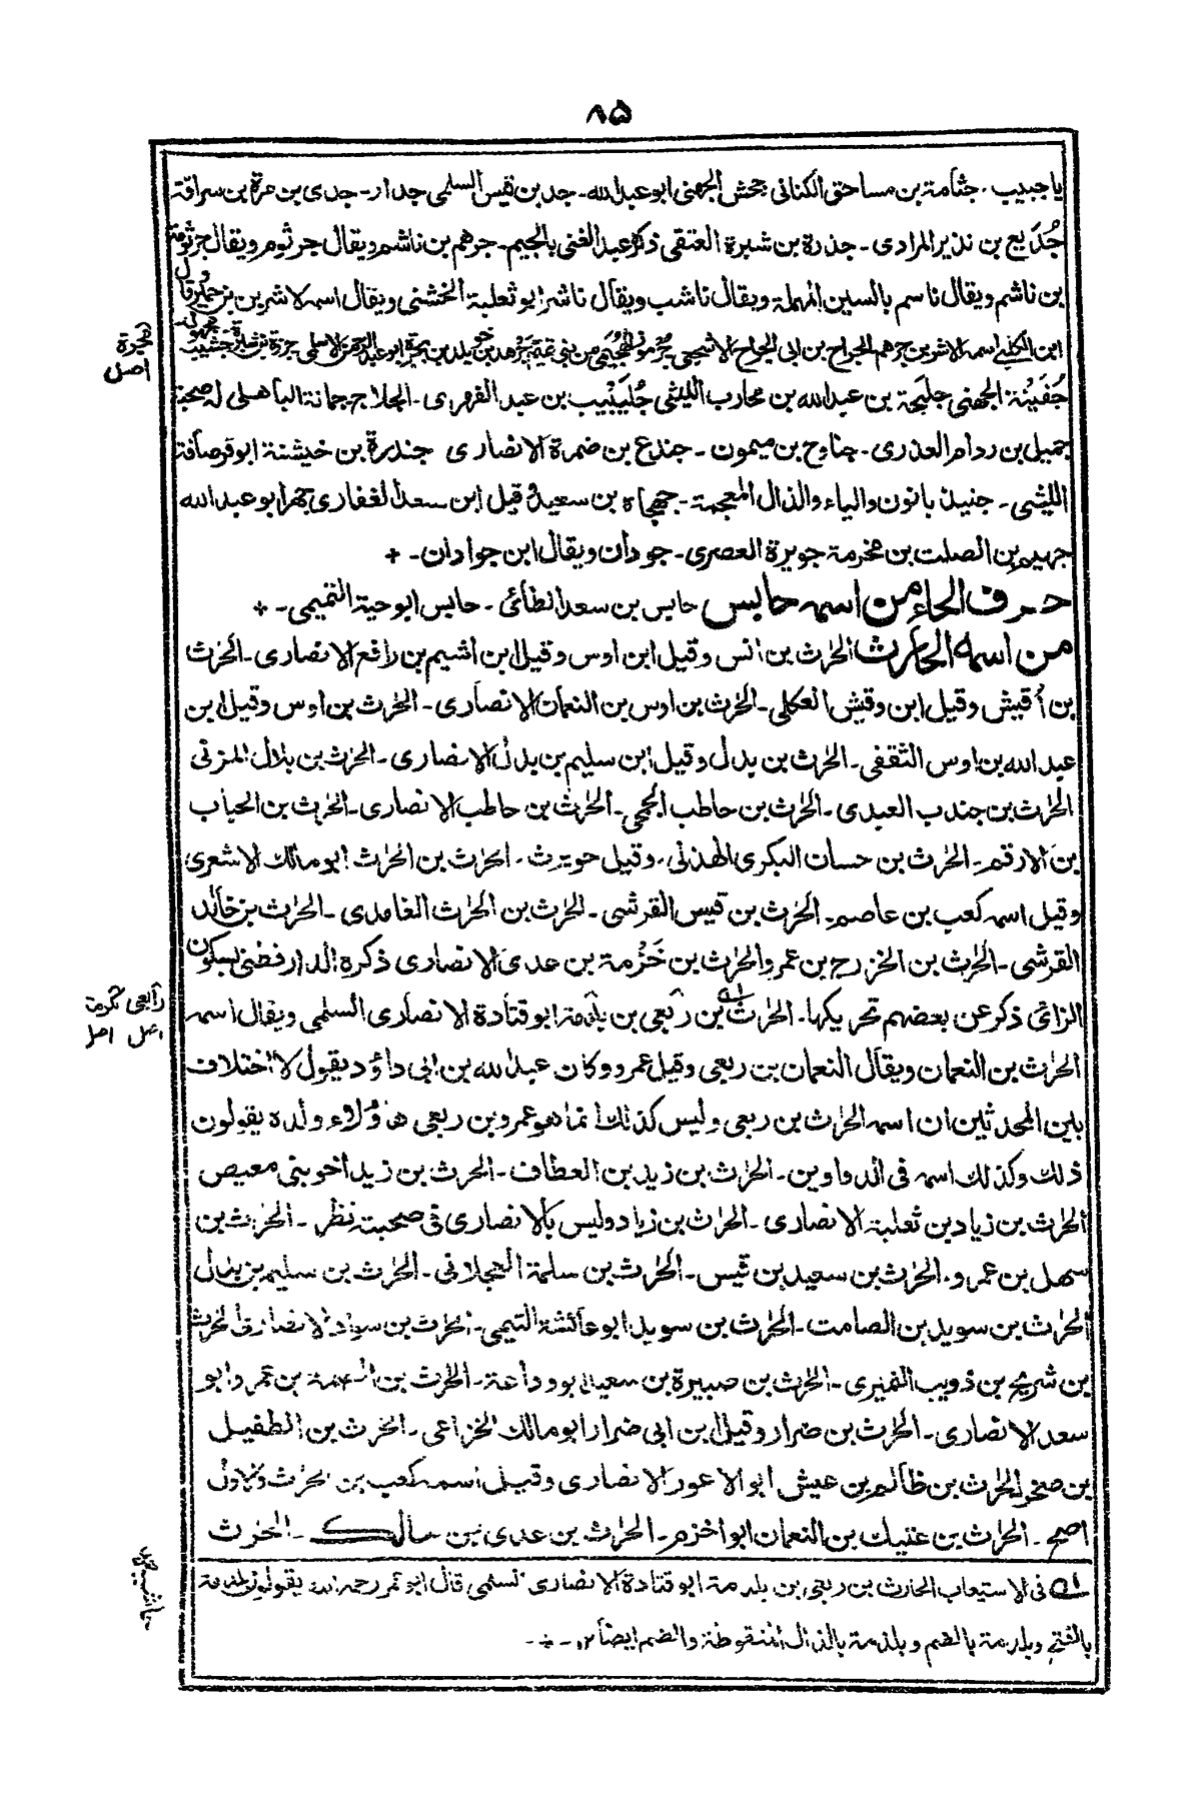 ۸۵
يا جبيب ـ جثامة بن مساحق الكناني جحش الجهني ابو عبد الله ـ جد بن قيس السلمي جدار ـ جدى بن مرة بن سراقة
جُدَيع بن نذير المرادى ـ جذرة بن شبرة العتقى ذكره عبد الغنى بالجيم ـ جرهم بن ناشم ويقال جرثوم ويقال جرثومة
بن ناشم ويقال ناسم بالسين المهملة ويقال ناشب ويقال ناشر ابو ثعلبة الخشنى ويقال اسمه لاشر بن حمير قال
ابن الكلبى اسمه الاشر بن جرهم الجراح بن ابى الجراح الاشجعى جرموز الهجيمى جرهد بن خويلد بن بجرة ابو عبد الرحمن الاسلمى
جُفَينة الجهنى جليحة بن عبد الله بن محارب الليثى جُلَيْبِيب بن عبد الفهرى ـ الجلاح جمانة الباهلى له صحبة
جميل بن ردام العذرى ـ جناح بن ميمون ـ جندع بن ضمرة الانصارى جندرة بن خيشنة ابو قرصافة
الليثى ـ جنيذ بالنون والياء والذال المعجمة ـ جهجاه بن سعيد وقيل ابن سعد الغفارى جهر ابو عبد الله
جهيم بن الصلت بن مخرمة جويرة العصرى ـ جودان ويقال ابن جوادان ـ +
حرف الحاء من اسمه حابس حابس بن سعد الطائى ـ حابس ابو حية التميمى ـ +
من اسمه الحارث الحرٰث بن انس وقيل ابن اوس وقيل ابن اشيم بن رافع الانصارى ـ الحرٰث
بن أُقيش وقيل ابن وقيش العكلى ـ الحرٰث بن اوس بن النعمان الانصارى ـ الحرٰث بن اوس وقيل ابن
عبد الله بن اوس الثقفى ـ الحرٰث بن بدل وقيل ابن سليم بن بدل الانصارى ـ الحرٰث بن بلال المزنى
الحرٰث بن جندب العبدى ـ الحرٰث بن حاطب الجمحى ـ الحرٰث بن حاطب الانصارى ـ الحرٰث بن الحباب
بن الارقم ـ الحرٰث بن حسان البكرى الهذلى ـ وقيل حويرث ـ الحرٰث بن الحرٰث ابو مالك الاشعرى
وقيل اسمه كعب بن عاصم ـ الحرٰث بن قيس القرشى ـ الحرٰث بن الحرٰث الغامدى ـ الحرٰث بن خالد
القرشى ـ الحرٰث بن الخزرج بن عمر والحرٰث بن خَزْمة بن عدى الانصارى ذكره الدارقطنى بسكون
الزائ ذكر عن بعضهم تحريكها ـ الحرٰث بن ربعى بن بلدمة ابو قتادة الانصارى السلمى ويقال اسمه
الحرٰث بن النعمان ويقال النعمان بن ربعى وقيل عمرو وكان عبد الله بن ابى داؤد يقول لا اختلاف
بين المحدثين ان اسمه الحرٰث بن ربعى وليس كذلك انما هو عمرو بن ربعى هٰؤلاء ولده يقولون
ذلك وكذلك اسمه فى الدواوين ـ الحرٰث بن زيد بن العطاف ـ الحرث بن زيد اخو بنى معيص
الحرٰث بن زياد بن ثعلبة الانصارى ـ الحرٰث بن زياد وليس بالانصارى فى صحبته نظر ـ الحرٰث بن
سهل بن عمرو ـ الحرٰث بن سعيد بن قيس ـ الحرٰث بن سلمة العجلانى ـ الحرٰث بن سليم بن بدل
الحرٰث بن سويد بن الصامت ـ الحرٰث بن سويد ابو عائشة التيمى ـ الحرٰث بن سواد الانصارى الحرٰث
بن شريح بن ذويب النميرى ـ الحرٰث بن صبيرة بن سعيد ابو وداعة ـ الحرٰث بن الصمة بن عمرو ابو
سعد الانصارى ـ الحرٰث بن ضرار وقيل ابن ابى ضرار ابو مالك الخزاعى ـ الحرث بن الطفيل
بن صخر الحرٰث بن ظالم بن عبس ابو الاعور الانصارى وقيل اسمه كعب بن الحرٰث والاول
اصح ـ الحرٰث بن عتيك بن النعمان ابو اخزم ـ الحرٰث بن عدى بن مالك ـ الحرٰث
فى الاستيعاب الحارث بن ربعى بن بلدمة ابو قتادة الانصارى السلمى قال ابو عمر رحمه الله يقولون بلدمة
بالفتح وبلدمة بالضم وبلذمة بالذال المنقوطة والضم ايضاً ١٢ ـ
بجرة
اصل